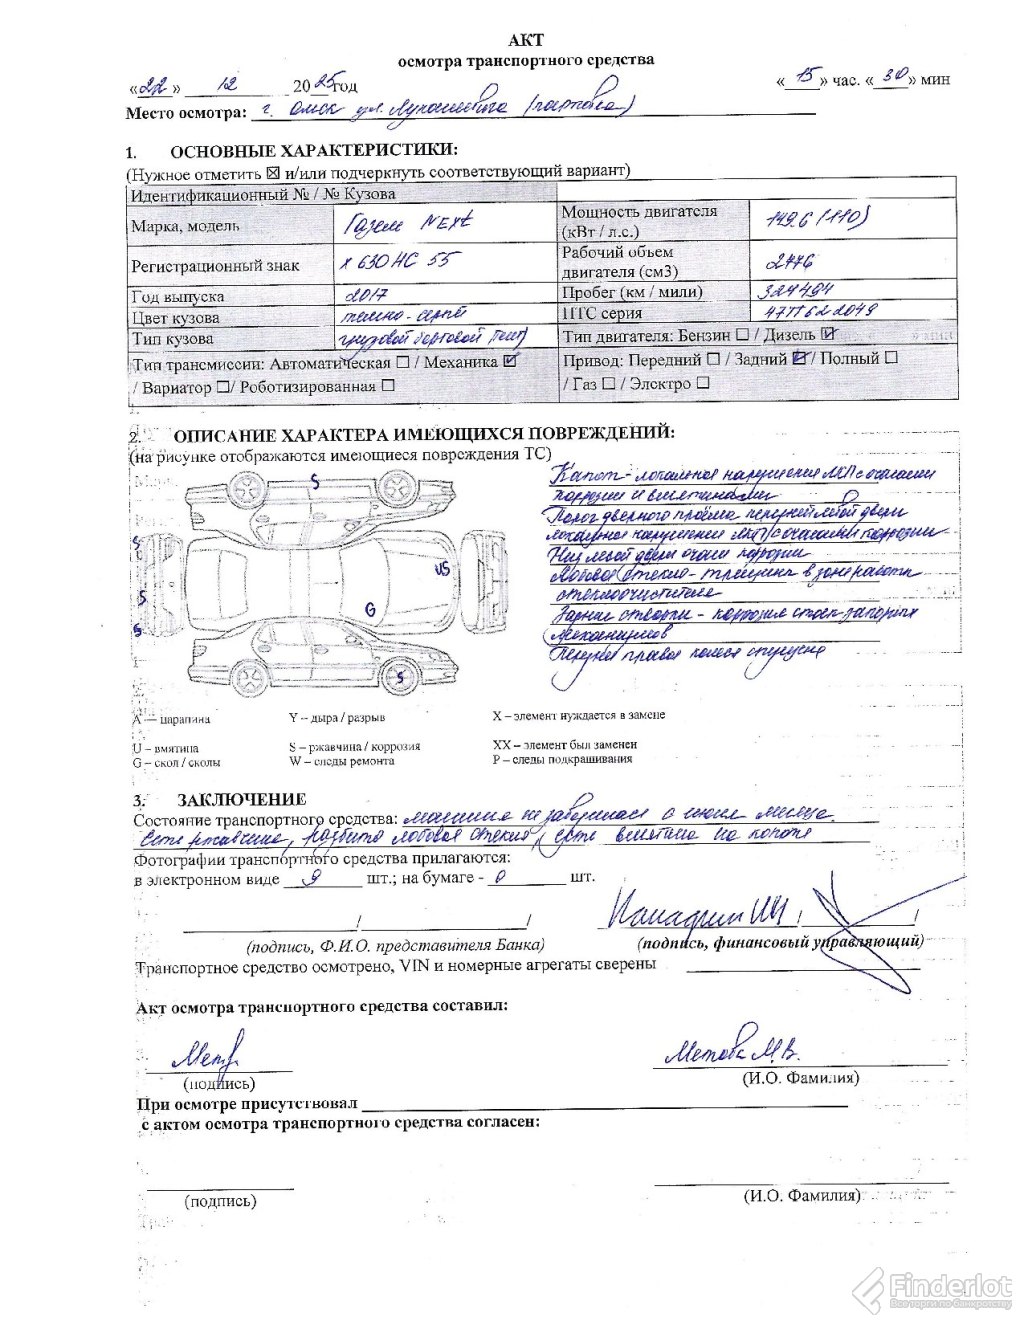 АКТ
осмотра транспортного средства
«22» 12 2025год «15» час. «30» мин
Место осмотра: г. Омск ул. Лукашевича (парковка)
1. ОСНОВНЫЕ ХАРАКТЕРИСТИКИ:
(Нужное отметить ☒ и/или подчеркнуть соответствующий вариант)
Идентификационный № / № Кузова
Марка, модель Газель NEXt Мощность двигателя (кВт / л.с.) 149.6 (110)
Регистрационный знак х 630 НС 55 Рабочий объем двигателя (см3) 2776
Год выпуска 2017 Пробег (км / мили) 324494
Цвет кузова темно-серый ПТС серия
Тип кузова грузовой бортовой (тент) Тип двигателя: Бензин ☐ / Дизель ☑
Тип трансмиссии: Автоматическая ☐ / Механика ☑ Привод: Передний ☐ / Задний ☑ / Полный ☐
/ Вариатор ☐/ Роботизированная ☐ / Газ ☐ / Электро ☐
2. ОПИСАНИЕ ХАРАКТЕРА ИМЕЮЩИХСЯ ПОВРЕЖДЕНИЙ:
(на рисунке отображаются имеющиеся повреждения ТС)
Капот - локальное нарушение ЛКП с очагами
коррозии и вмятинами
Порог дверного проёма передней левой двери
локальное нарушение ЛКП с очагами коррозии
Низ левой двери очаги коррозии
Лобовое стекло - трещина в зоне работы
стеклоочистителя
Задние створки - коррозия стоек запорных
механизмов
Переднее правое колесо спущено
S
S
S
S
US
G
S
А — царапина Y – дыра / разрыв X – элемент нуждается в замене
U – вмятина S – ржавчина / коррозия XX – элемент был заменен
G – скол / сколы W – следы ремонта P – следы подкрашивания
3. ЗАКЛЮЧЕНИЕ
Состояние транспортного средства: машина не заводилась с июля месяца.
Есть ржавчина, разбито лобовое стекло, есть вмятина на капоте
Фотографии транспортного средства прилагаются:
в электронном виде 9 шт.; на бумаге - 0 шт.
/ / / /
(подпись, Ф.И.О. представителя Банка) (подпись, финансовый управляющий)
Транспортное средство осмотрено, VIN и номерные агрегаты сверены
Акт осмотра транспортного средства составил:
Метова М.В.
(подпись) (И.О. Фамилия)
При осмотре присутствовал
с актом осмотра транспортного средства согласен:
(подпись) (И.О. Фамилия)
Finderlot
Все торги по банкротству